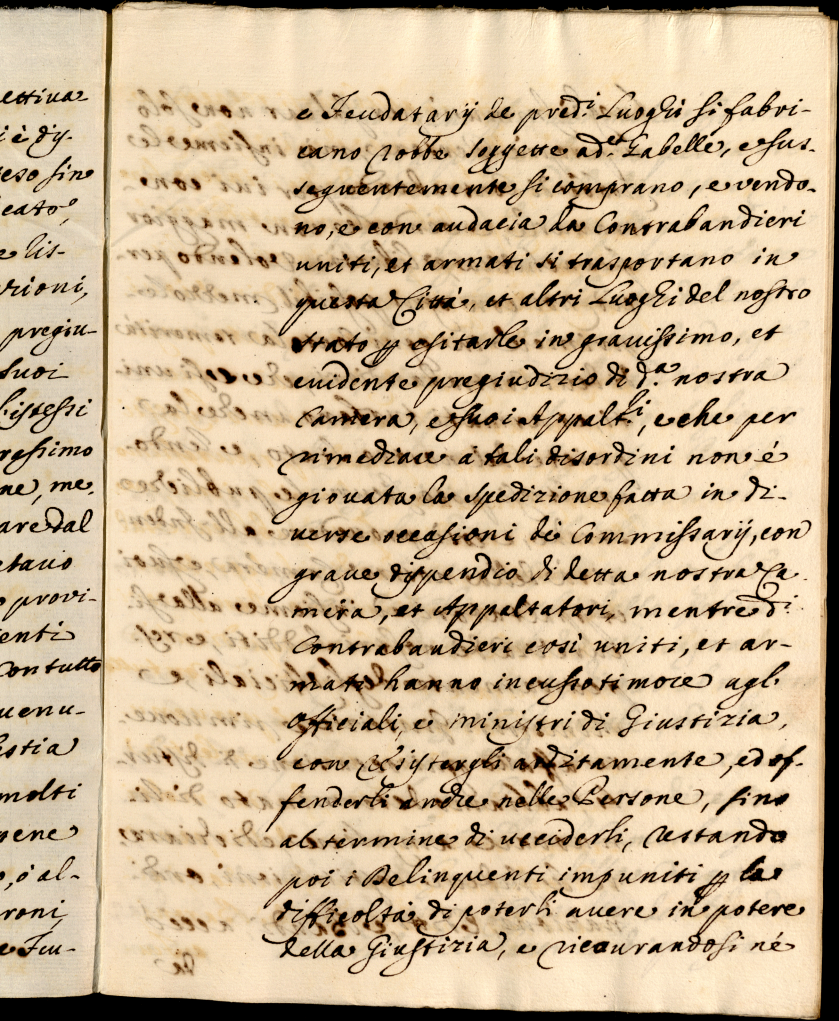 ettiua
i è dis-
reso sin
icato,
e lis-
rioni,
pregiu-
suoi
l'istessi
ressimo
ne, me-
are dal
etauo
provi-
enti
Con tutto
uenu-
estia
molti
pene
o, ò al-
roni,
e Feu-
e Feudatarij de pred.i Luoghi si fabri-
cano robbe soggette ad.e Gabelle, e sus-
seguentemente si comprano, e vendo-
no, e con audacia da Contrabandieri
uniti, et armati si trasportano in
questa Città, et altri Luoghi del nostro
stato p esitarle in grauissimo, et
euidente pregiudizio di d.a nostra
Camera, e suoi Appalt.i, e che per
rimediare à tali disordini non é
giouata la spedizione fatta in di-
uerse occasioni de Commissarij, con
graue dispendio di detta nostra Ca-
mera, et Appaltatori, mentre d.i
Contrabandieri così uniti, et ar-
mati hanno incusso timore agl'
officiali, e ministri di Giustizia,
con resistergli arditamente, ed of-
fenderli anche nelle Persone, sino
al termine di ucciderli, restando
poi i Delinquenti impuniti p la
difficoltà di poterli auere in potere
della Giustizia, e ricourandosi né